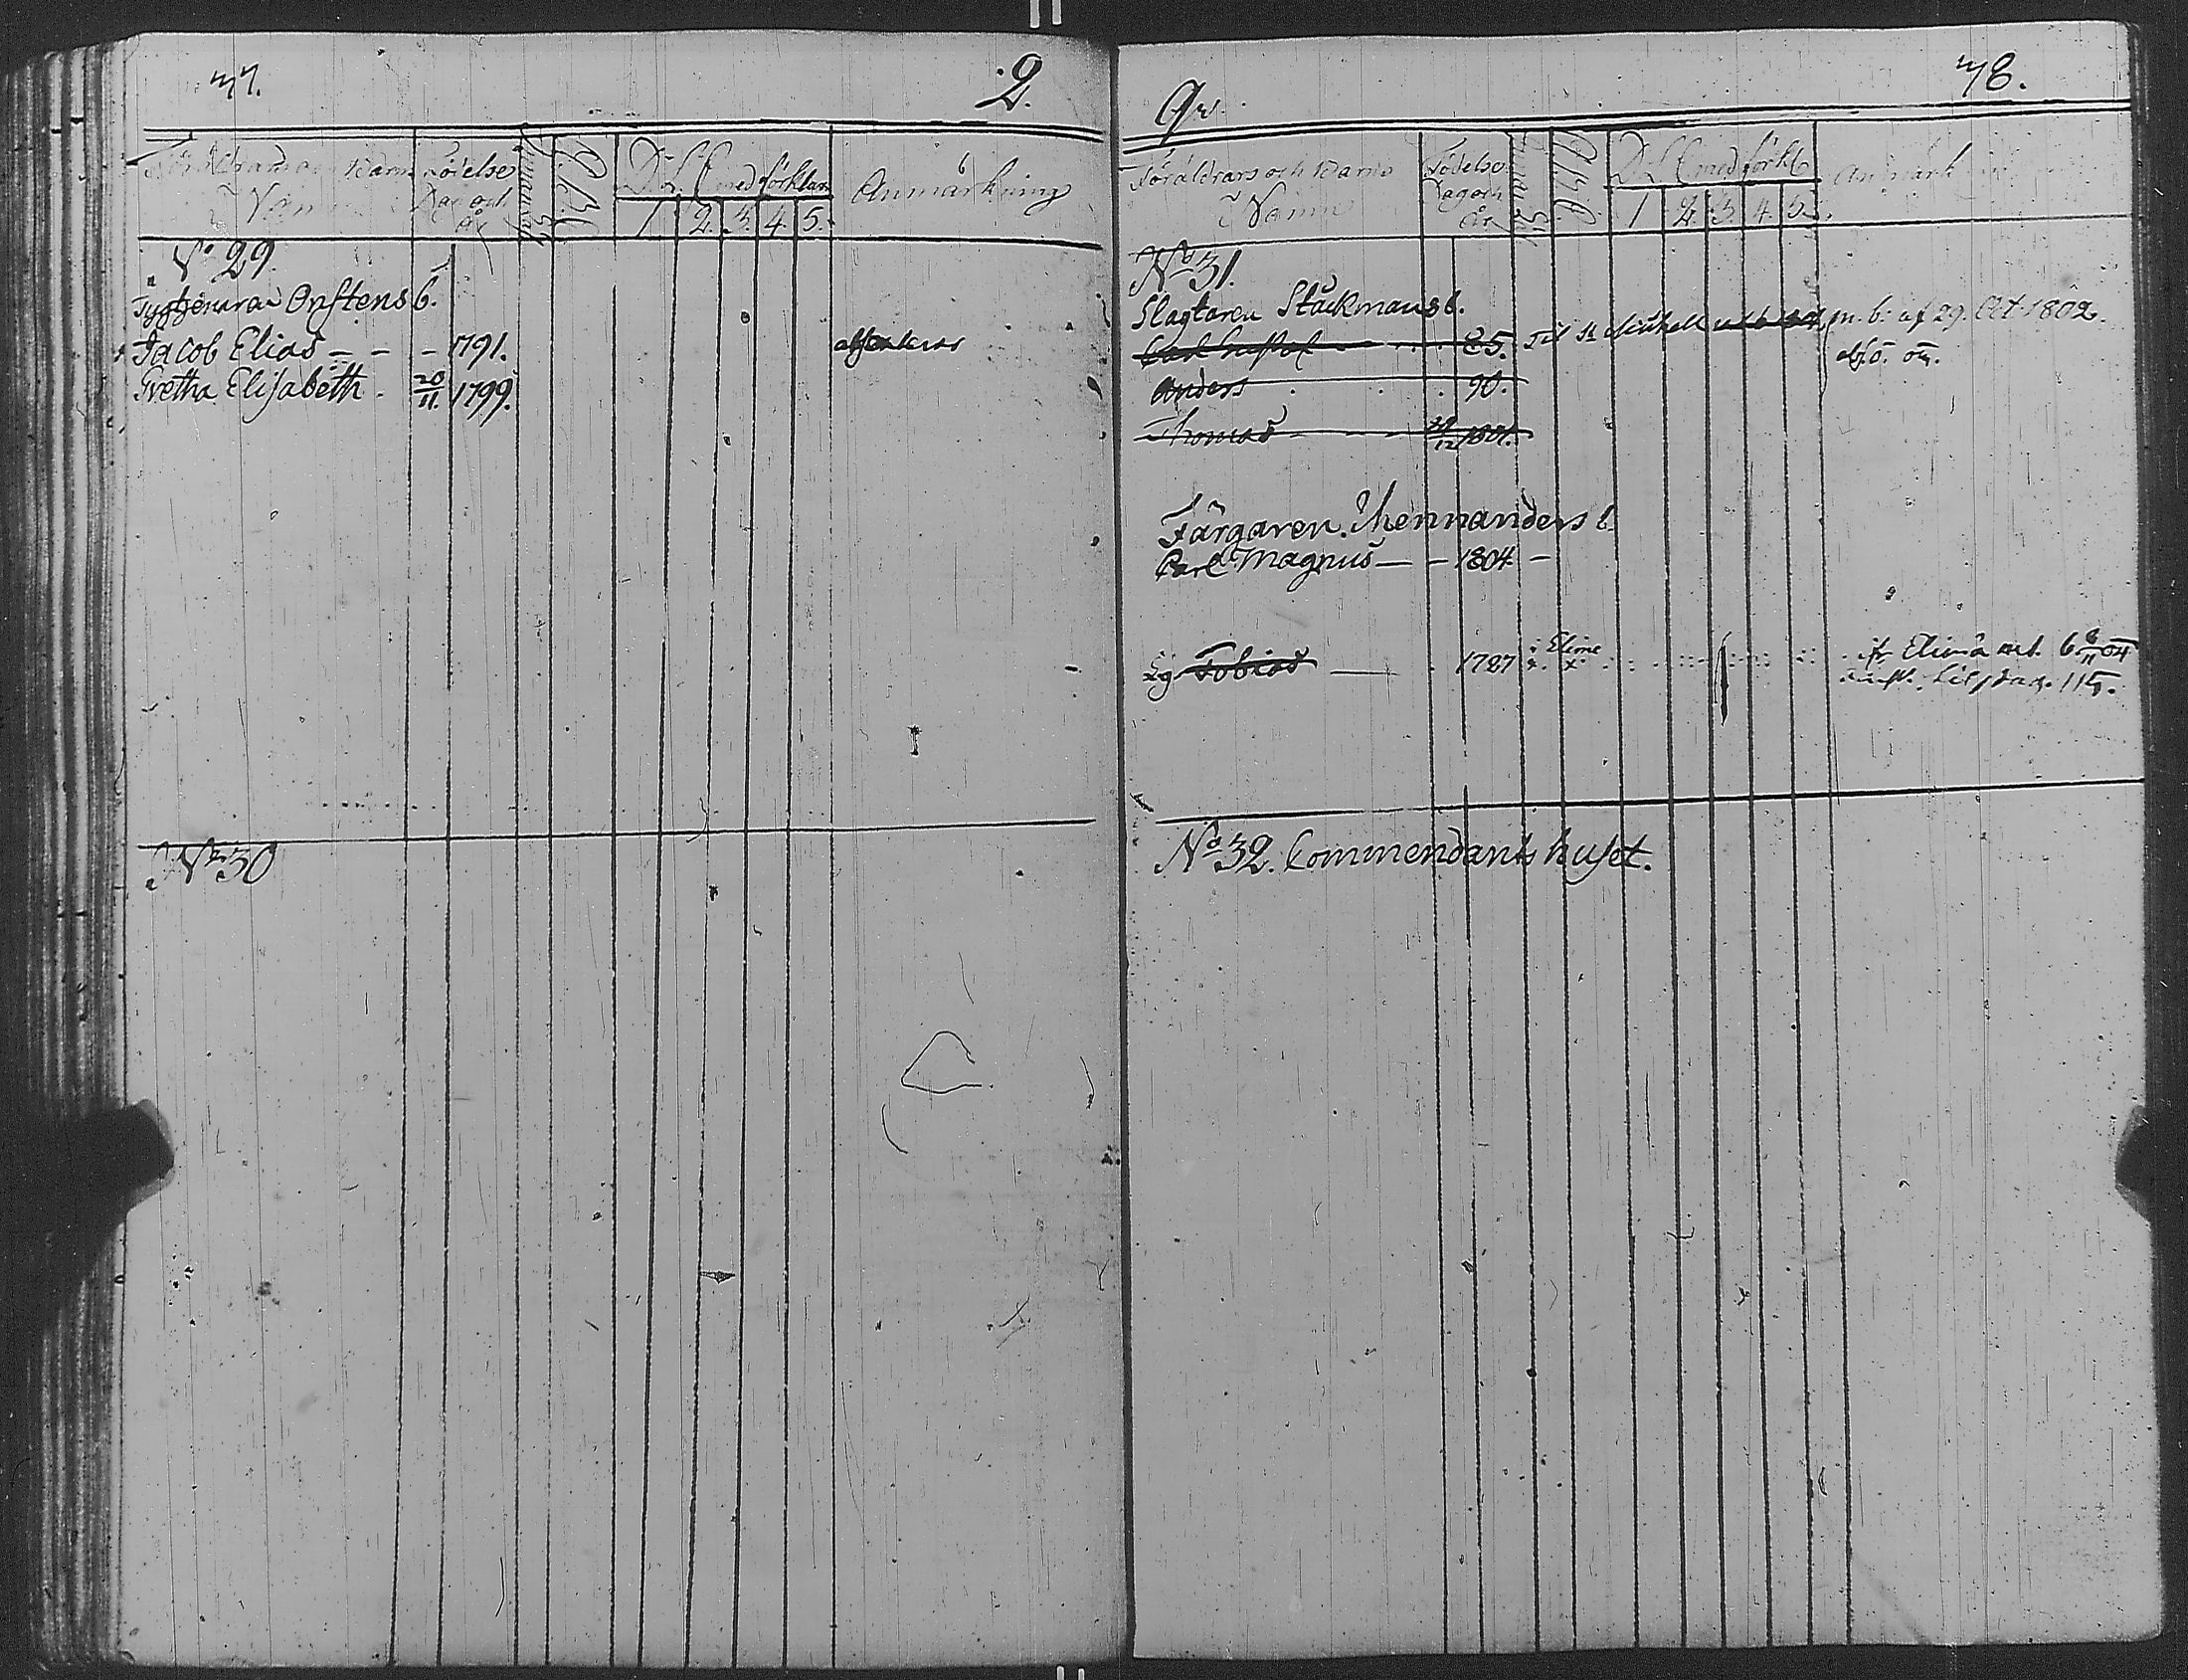 77.
2.
Föräldrars och Barns
Namn
Födelse
Dag och
år
A.B.C.
D. L. C. med förklar.
1. 2. 3. 4. 5.
Anmärkning
No 29
Onstens b.
Jacob Elias - - - 1791.
Gretha Elisabeth . 20/11. 1799.
No 30
Qv.
78.
Föräldrars och Barns
Namn
Födelse
Dag och
år
A.B.C.
D. L. C. med förkl
1 2. 3. 4. 5.
Anmärk
No 31.
Slagtaren Stäckmans b.
Carl Gustaf 85. Til St Michell m. b. af 29. Oct 1802.
Anders 90.
Thomas 29/12 1801.
Färgaren Mennanders b
Carl Magnus — - 1804 -
Lg Tobias — 1787 i Elime
Elimä 6 8/11 04
No 32. Commendants huset.